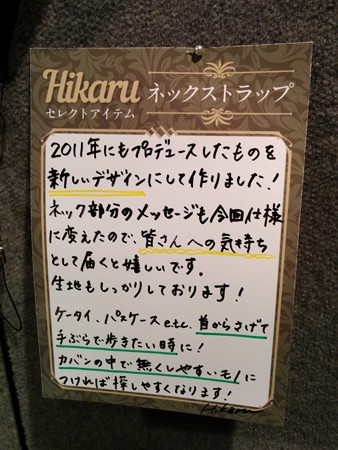 Hikaru
セレクトアイテム
ネックストラップ
2011年にもプロデュースしたものを
新しいデザインにして作りました!
ネック部分のメッセージも今回仕様
に変えたので、皆さんへの気持ち
として届くと嬉しいです。
生地もしっかりしております!
ケータイ、パスケースe.t.c. 首からさげて
手ぶらで歩きたい時に!
カバンの中で無くしやすいモノに
つければ探しやすくなります!
Hikaru